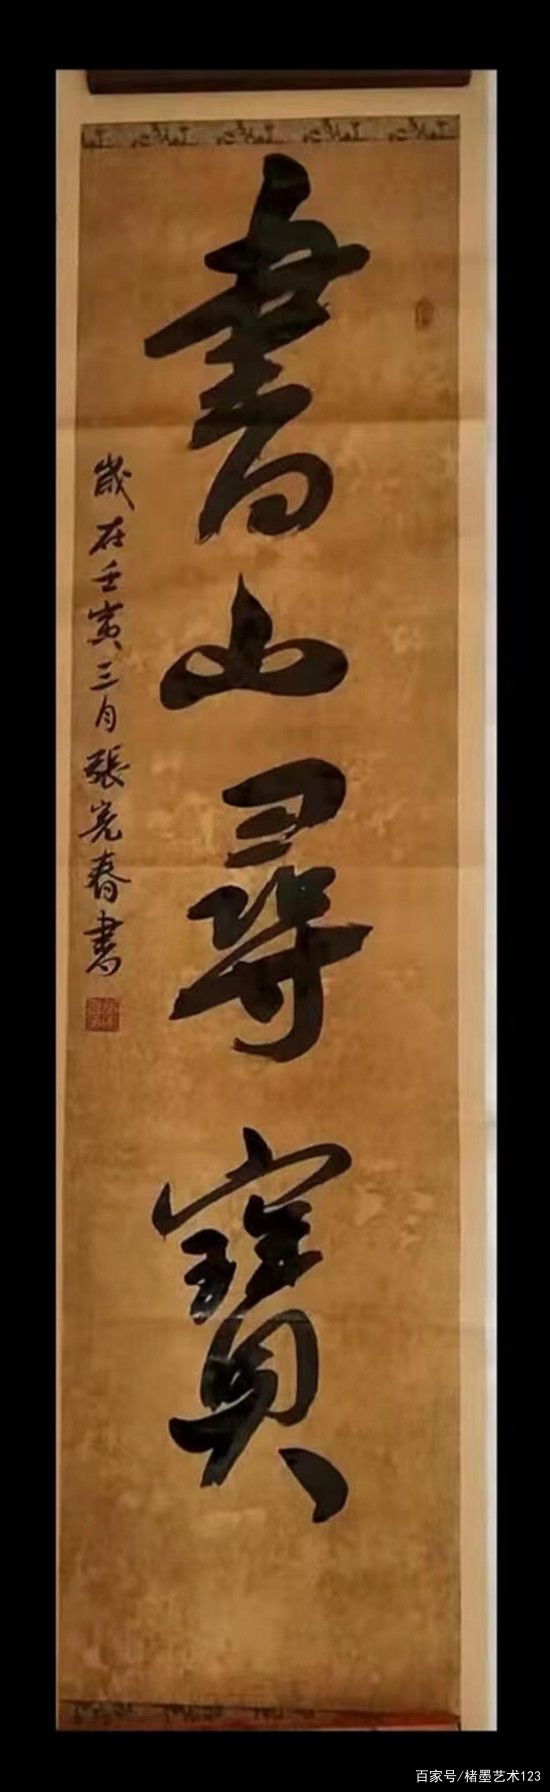 書山尋寶
歲在壬寅三月張光春書
百家号/楮墨艺术123